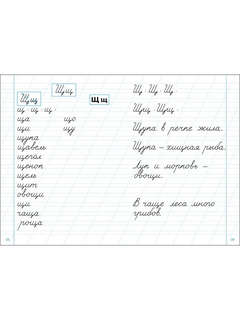 Щщ
Щщ
Щщ
щ щ щ
ща що
щи щу
щупа
щавель
щегол
щенок
щель
щит
овощи
щи
чаща
роща
Щ Щ Щ
Щщ Щщ
Щупа в речке жила.
Щупа – хищная рыба.
Лук и морковь –
овощи.
В чаще леса много
грибов.